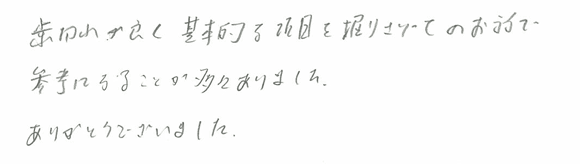 歯切れが良く 基本的な項目を掘りさげてのお話で
参考になることが多々ありました.
ありがとうございました.